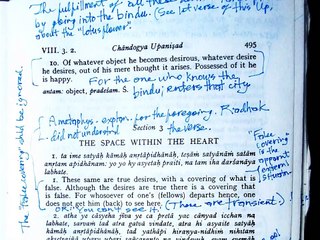 The fulfillment of all these
by going into the bindu. (See 1st verse of this Up.
about the "lotus flower".
VIII. 3. 2. Chāndogya Upaniṣad 495
10. Of whatever object he becomes desirous, whatever desire
he desires, out of his mere thought it arises. Possessed of it he
is happy.
For the one who knows the
bindu; enters that city
antam: object, pradeśam. Ś.
A metaphys. explan. for the foregoing.
did not understand the verse.
Section 3
THE SPACE WITHIN THE HEART
"False
covering"
is the
apparent
external
situation.
1. ta ime satyāḥ kāmāḥ anṛtāpidhānāḥ, teṣāṁ satyānāṁ satām
anṛtam apidhānam: yo yo hy asyetaḥ praiti, na tam iha darśanāya
labhate.
1. These same are true desires, with a covering of what is
false. Although the desires are true there is a covering that
is false. For whosoever of one's (fellows) departs hence, one
does not get him (back) to see here.
or, you can't see it (These are transient.)
The false covering shld be ignored.
2. atha ye cāsyeha jīvā ye ca pretā yac cānyad icchan na
labhate, sarvaṁ tad atra gatvā vindate, atra hy asyaite satyāḥ
kāmāḥ anṛtāpidhānāḥ, tad yathāpi hiraṇya-nidhiṁ nihitam